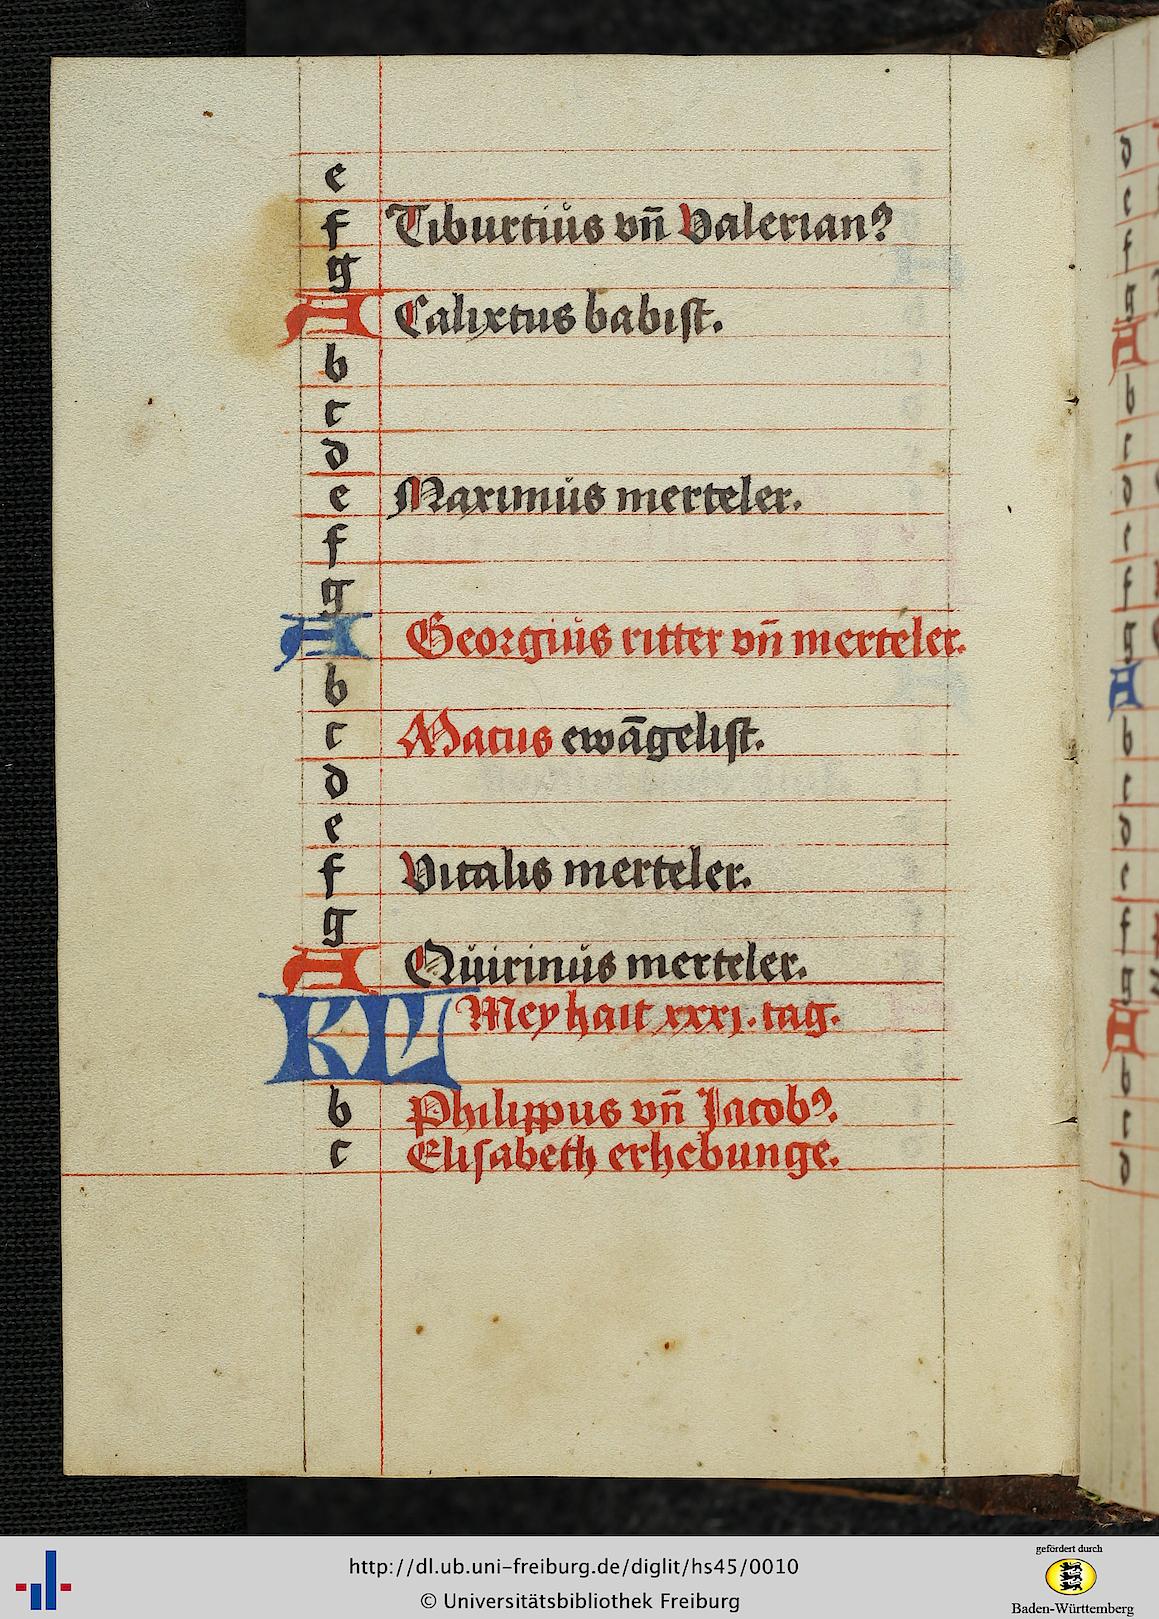 e
f Tiburtiůs vn̄ Valerianꝰ
g
A Calixtus babist.
b
c
d
e Maximůs merteler.
f
g
A Georgiůs ritter vn̄ merteler.
b
c Matus ewāgelist.
d
e
f Vitalis merteler.
g
A Quirinůs merteler.
KL Mey hait xxxj. tag.
b Philippus vn̄ Jacobꝰ.
c Elisabeth erhebunge.
d
e
f
g
A
b
c
d
e
f
g
A
b
c
d
e
f
g
A
b
c
d
http://dl.ub.uni-freiburg.de/diglit/hs45/0010
© Universitätsbibliothek Freiburg
gefördert durch
Baden-Württemberg